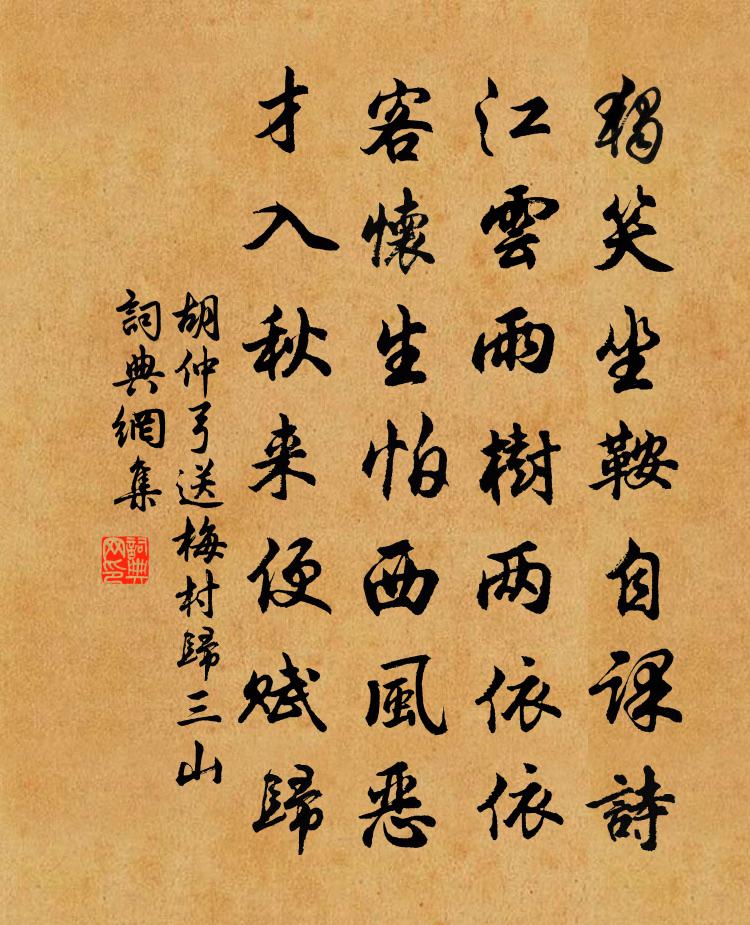 獨笑坐鞍自課詩
江雲雨樹两依依
客懷生怕西風惡
才入秋来便賦歸
胡仲弓送梅村歸三山
詞典網集
詞典
网印